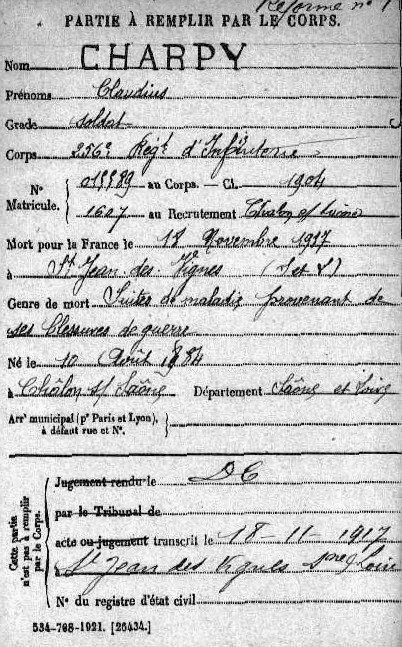 Réforme n° 1
PARTIE À REMPLIR PAR LE CORPS.
Nom CHARPY
Prénoms Claudius
Grade soldat
Corps 256e Régt d'Infanterie
N° Matricule. { 019989 au Corps. — Cl. 1904
1607 au Recrutement Chalon s/ Saône
Mort pour la France le 18 Novembre 1917
à St Jean des Vignes (S et L)
Genre de mort Suites de maladie provenant de
ses blessures de guerre
Né le 10 Août 1884
à Châlon s/ Saône Département Saône et Loire
Arrt municipal (pr Paris et Lyon), à défaut rue et N°. }
Cette partie n'est pas à remplir par le Corps.
Jugement rendu le DC
par le Tribunal de
acte ou jugement transcrit le 18-11-1917
à St Jean des Vignes Loire
N° du registre d'état civil
534-708-1921. [26434.]